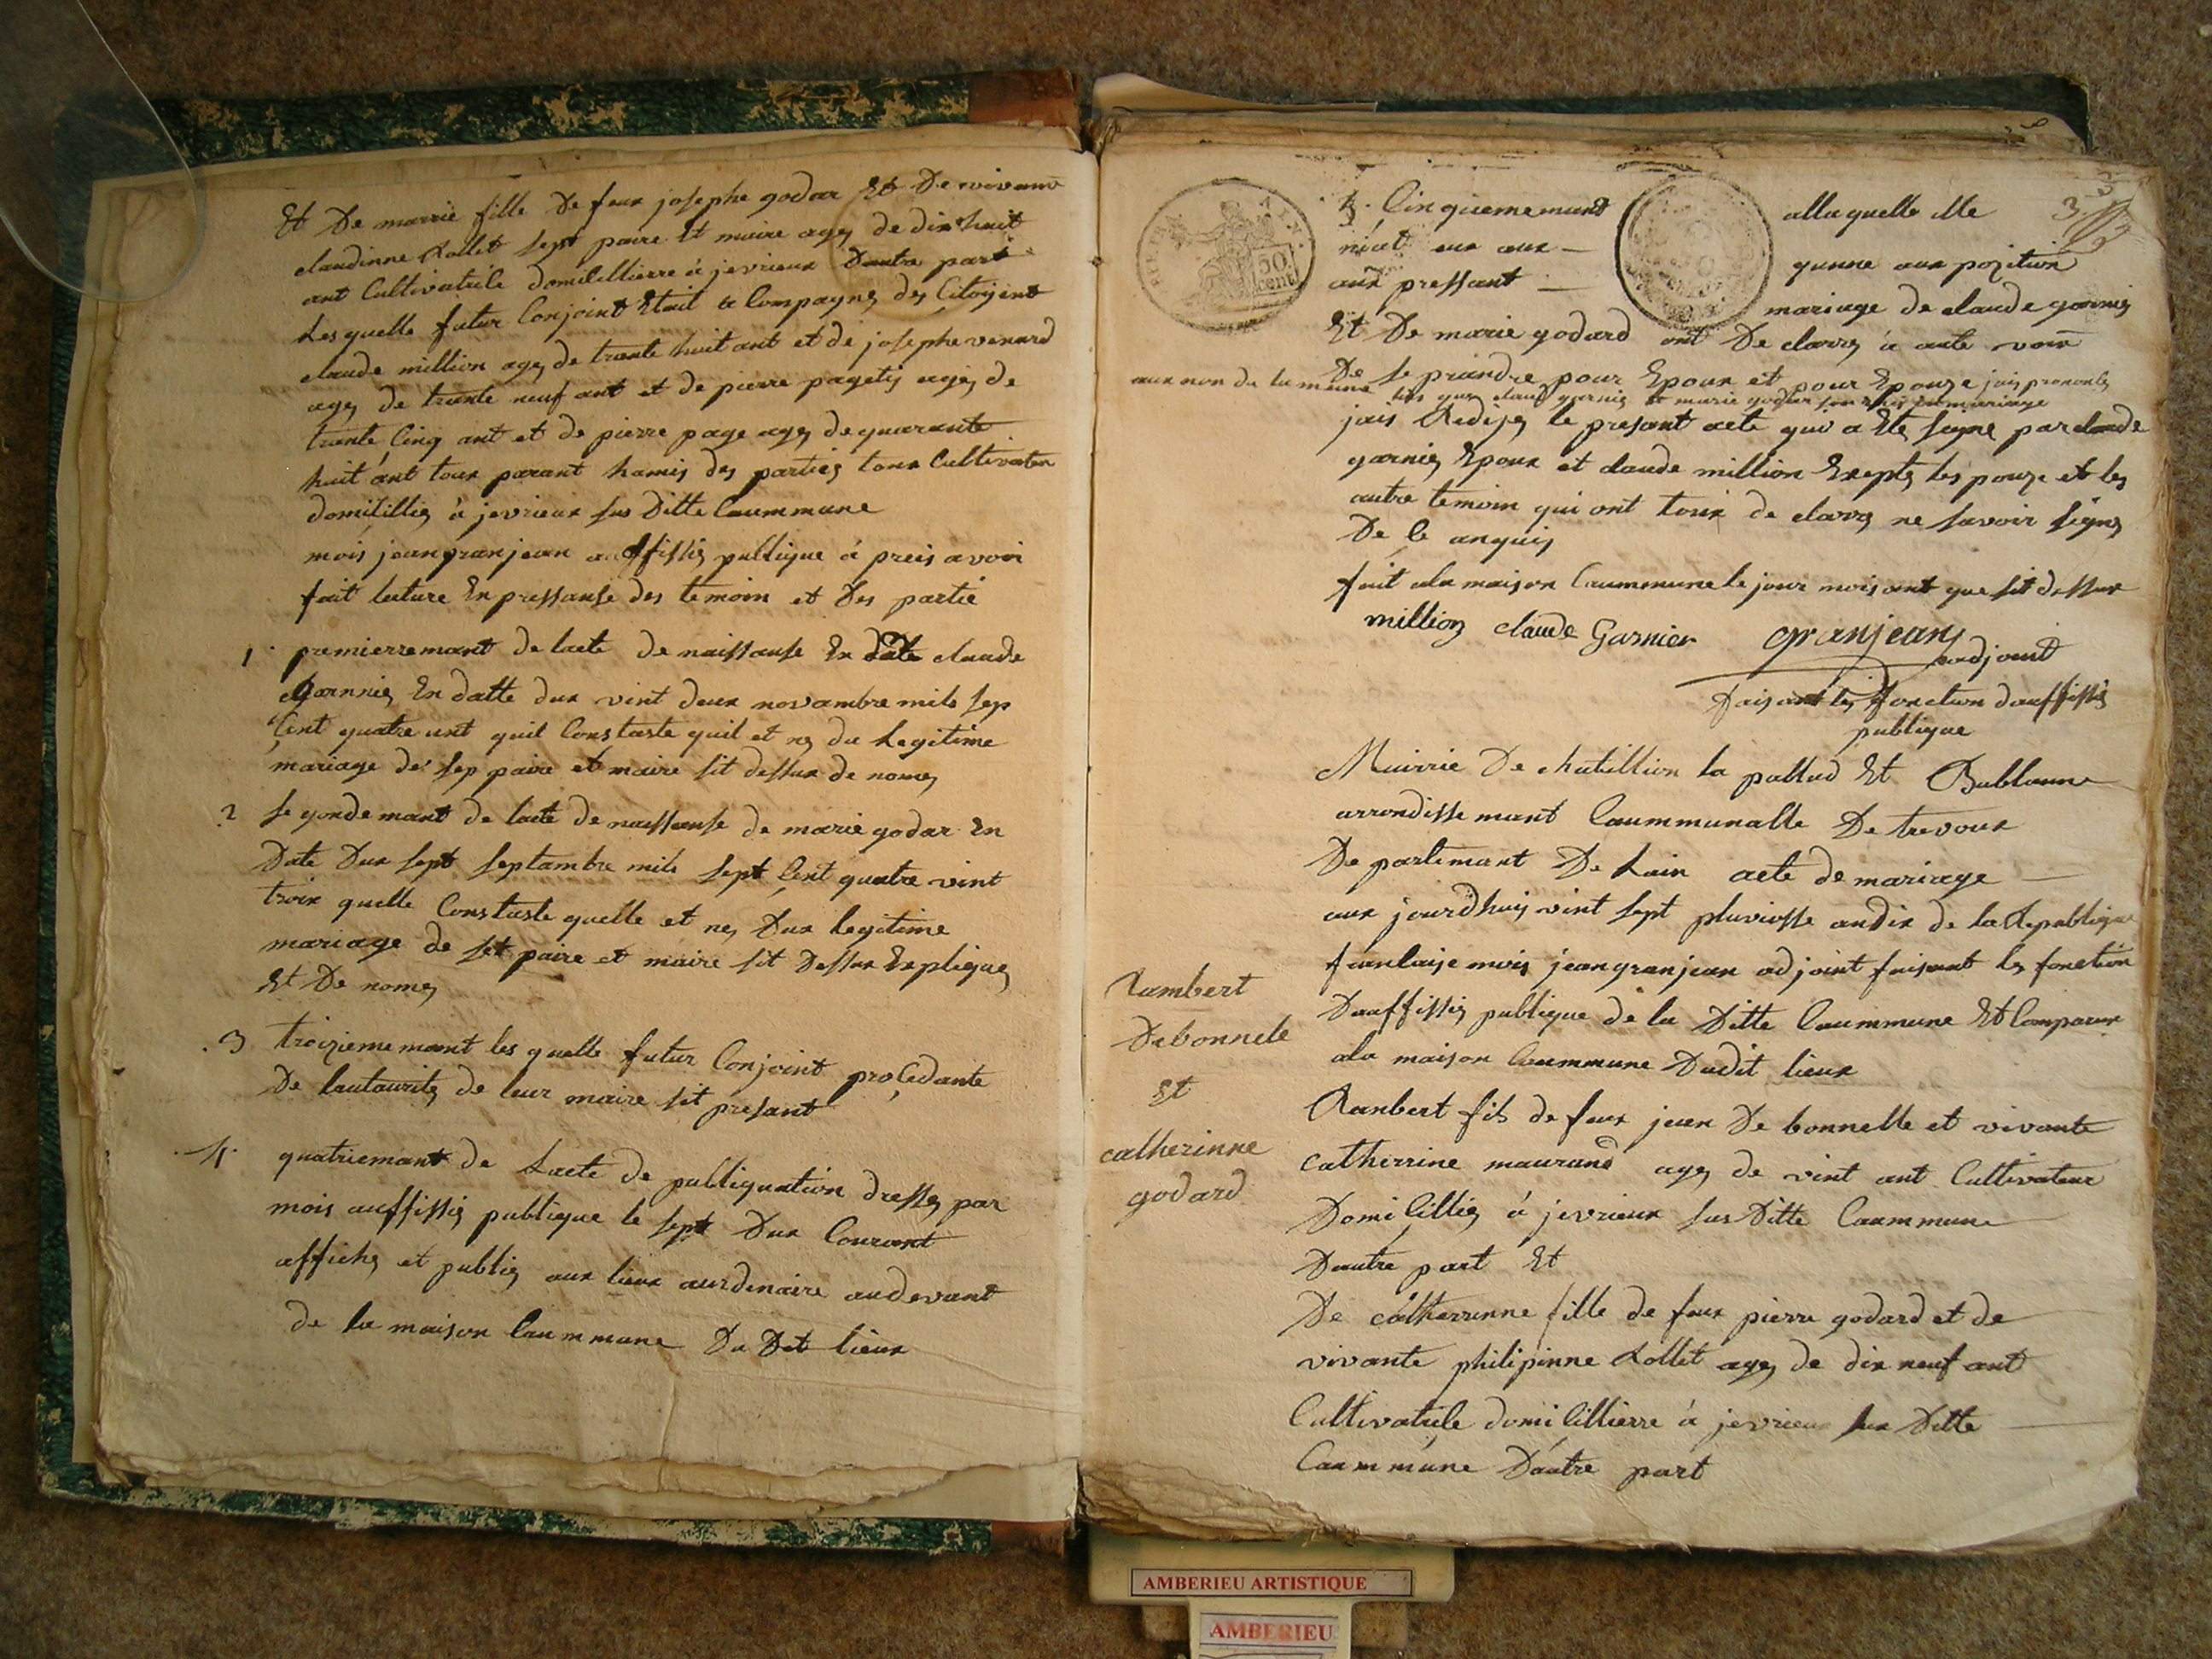 Et De marrie fille De feux josephe godar Et De vivante
claudinne Rollet sept paire et maire agez de dix huit
ant Cultivatrile domilillierre à jevrieux Dautre part
Les quelle futur Conjoint Etait a Compagnez des Citoyent
claude million agez de trante huit ant et de josephe venard
agez de trante neuf ant et de pierre pagetij agez de
trante Cinq ant et de pierre page agez de quarante
huit ant toux parant hamis des parties toux Cultivater
domililliez à jevrieux sus Ditte Caummune
mois jean granjean auffissiez publique à preis avoir
fait lecture En pressansse des temoin et Des partie
1 premierremant de lacte de naissansse En date claude
Garnniez En datte dux vint deux novambre mile sep
Cent quatre unt quil Constaste quil et nez du Legitime
mariage de sep paire et maire sit dessux de nomez
2 segondemant de lacte de naissansse de marie godar En
Date Dux sept septambre mile sept Cent quatre vint
troix quelle Constaste quelle et nez Dux legitime
mariage de set paire et maire sit Dessux Expliquez
Et De nomez
3 troizieme mant les quelle futur Conjoint proçedante
De lautauritez de leur maire sit presant
4 quatriemant de Lacte de publiquation dressez par
mois auffissiez publique le sept Dux Courant
affichez et publiez aux lieux aurdenaire audevant
de la maison Caummune Du Dit lieux
50 cent
5. Cinquiememant allaquelle ille
niat eux aux — qunne aux pozition
aux pressant — mariage de claude garniez
Et De marie godard ont De clarrez à aute voix
De se prandre pour Epoux et pour Epouze jais prononlez
aux non de la meme
que claud garniez et marie godar son unis en mariage
jais Redijez le presant acte qui a Ete signe par claude
garniez Epoux et claude million Exeptez les pouze et les
autre temoin qui ont toux de clarrez ne savoir signez
De le anquis
fait ala maison Caummune le jour mois ant que sit dessux
million claude Garnier granjean
adjoint
faisant les fonction dauffissiez
publique
Mairrie De chatillion la pallud Et Bublanne
arrondisse mant Caummunalle De trevoux
De partemant De Lain acte de mariage —
aux jourdhuij vint sept pluviosse an dix de la Republique
franlaise mois jean granjean adjoint faisant les fonction
Dauffissiez publique de la Ditte Caummune Et Comparux
ala maison Caummune Dudit lieux
Rambert
Debonnele
Et
catherinne
godard
Ranbert fils de feux jean De bonnelle et vivante
Catherrine maurand agez de vint ant Cultivateur
Domilillieez à jevrieux sus Ditte Caummune
Dautre part Et
De catherrinne fille de feux pierre godard et de
vivante philipinne Rollet agez de dix neuf ant
Cultivatrile domilillierre à jevrieux sus Ditte —
Caummune Dautre part
AMBERIEU ARTISTIQUE
AMBERIEU